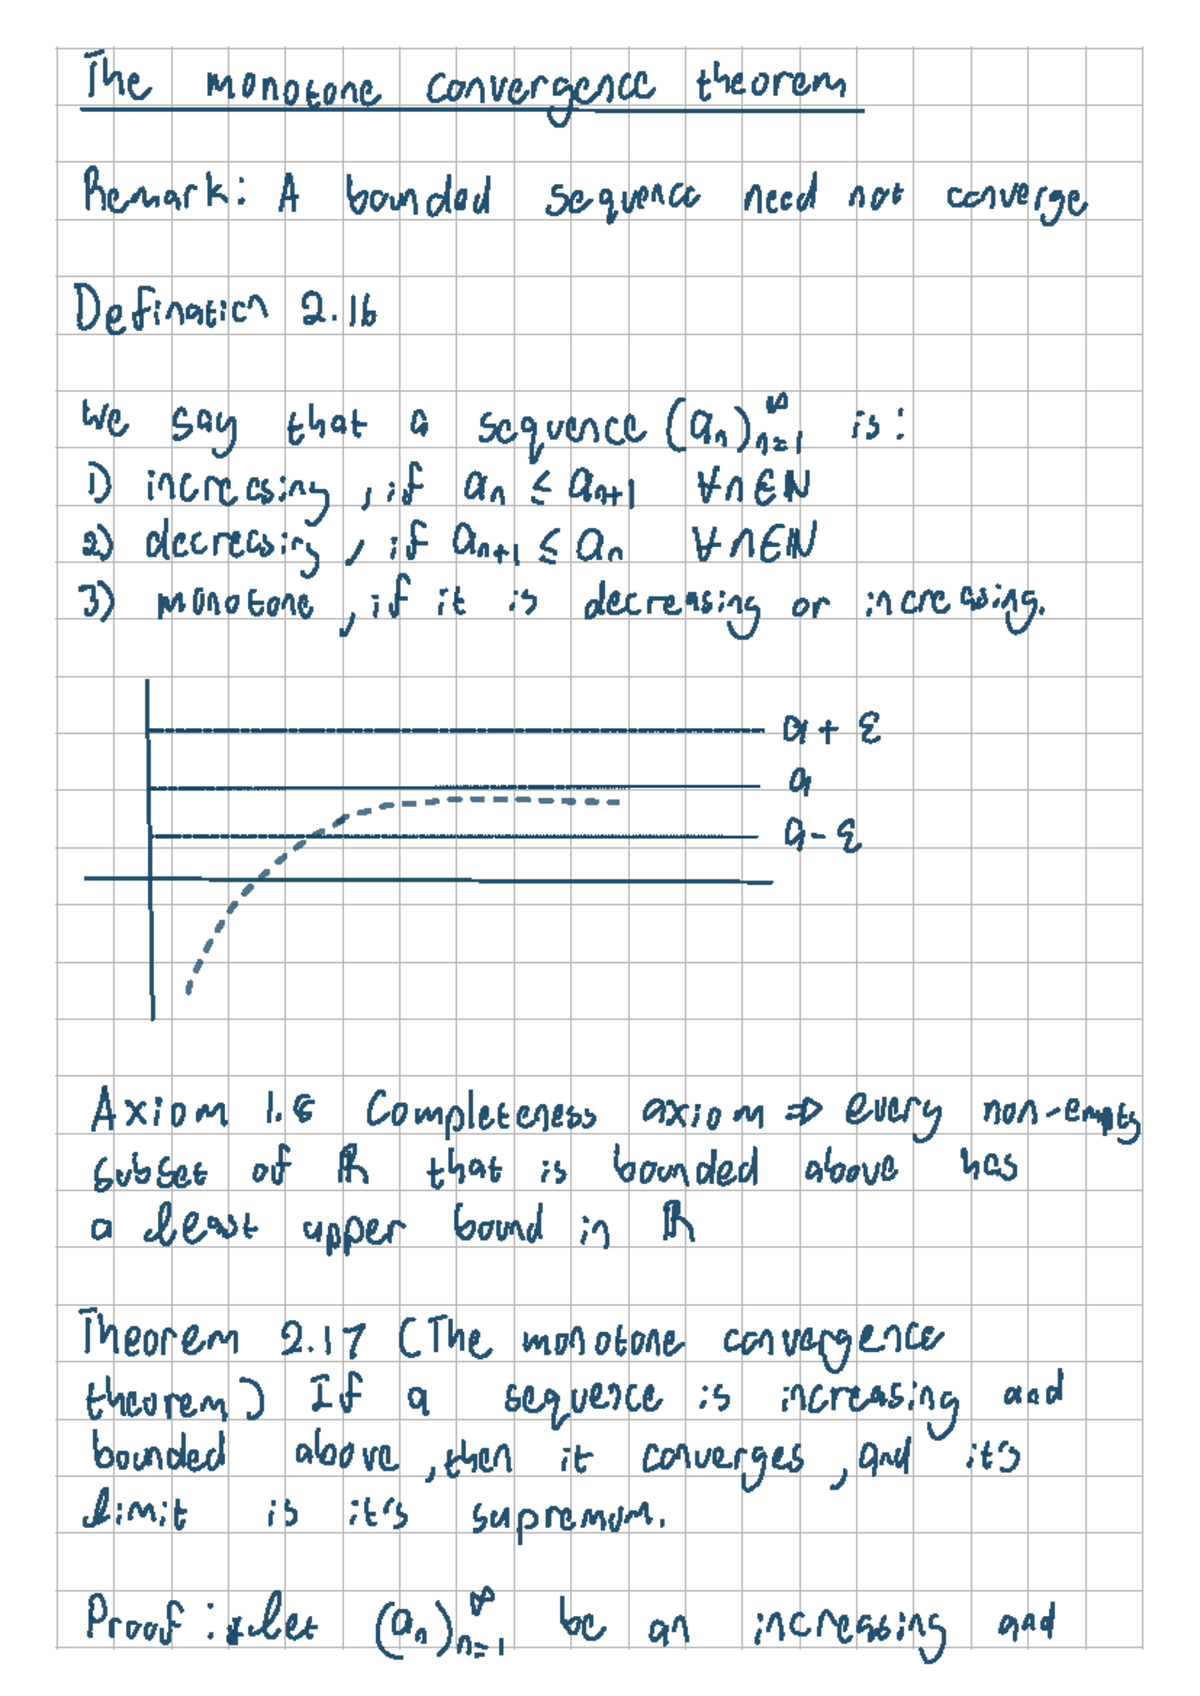 The monotone convergence theorem
Remark: A bounded sequence need not converge
Defination 2.16
We say that a sequence (aₙ)ₙ₌₁^∞ is:
1) increasing, if aₙ ≤ aₙ₊₁ ∀n∈ℕ
2) decreasing, if aₙ₊₁ ≤ aₙ ∀n∈ℕ
3) monotone, if it is decreasing or increasing.
a + ε
a
a - ε
Axiom 1.8 Completeness axiom ⇒ every non-empty
subset of ℝ that is bounded above has
a least upper bound in ℝ
Theorem 2.17 (The monotone convergence
theorem) If a sequence is increasing and
bounded above, then it converges, and it's
limit is it's supremum.
Proof: Let (aₙ)ₙ₌₁^∞ be an increasing and